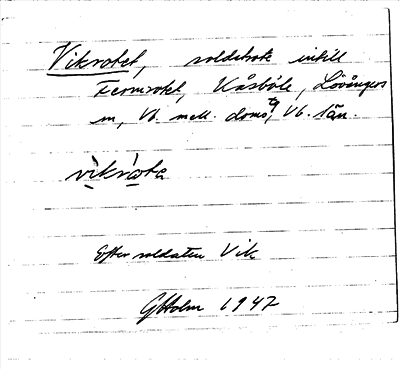 Vikrotet, soldatrote intill
Fermrotet, Kåsböle, Lövångers
sn, Vb. mell. doms, Vb. län.
vikròta
Efter soldaten Vik
GHolm 1947